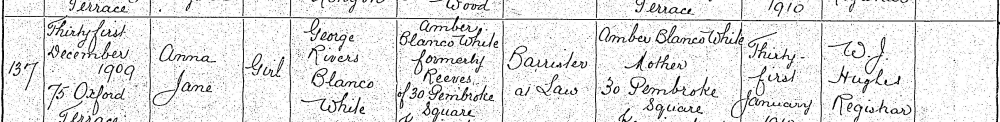 Terrace
Wood
Terrace
1910
137
Thirty first
December
1909
75 Oxford
Terrace
Anna
Jane
Girl
George
Rivers
Blanco
White
Amber
Blanco White
formerly
Reeves
of 30 Pembroke
Square
Barrister
at Law
Amber Blanco White
Mother
30 Pembroke
Square
Thirty-
first
January
W. J.
Hughes
Registrar